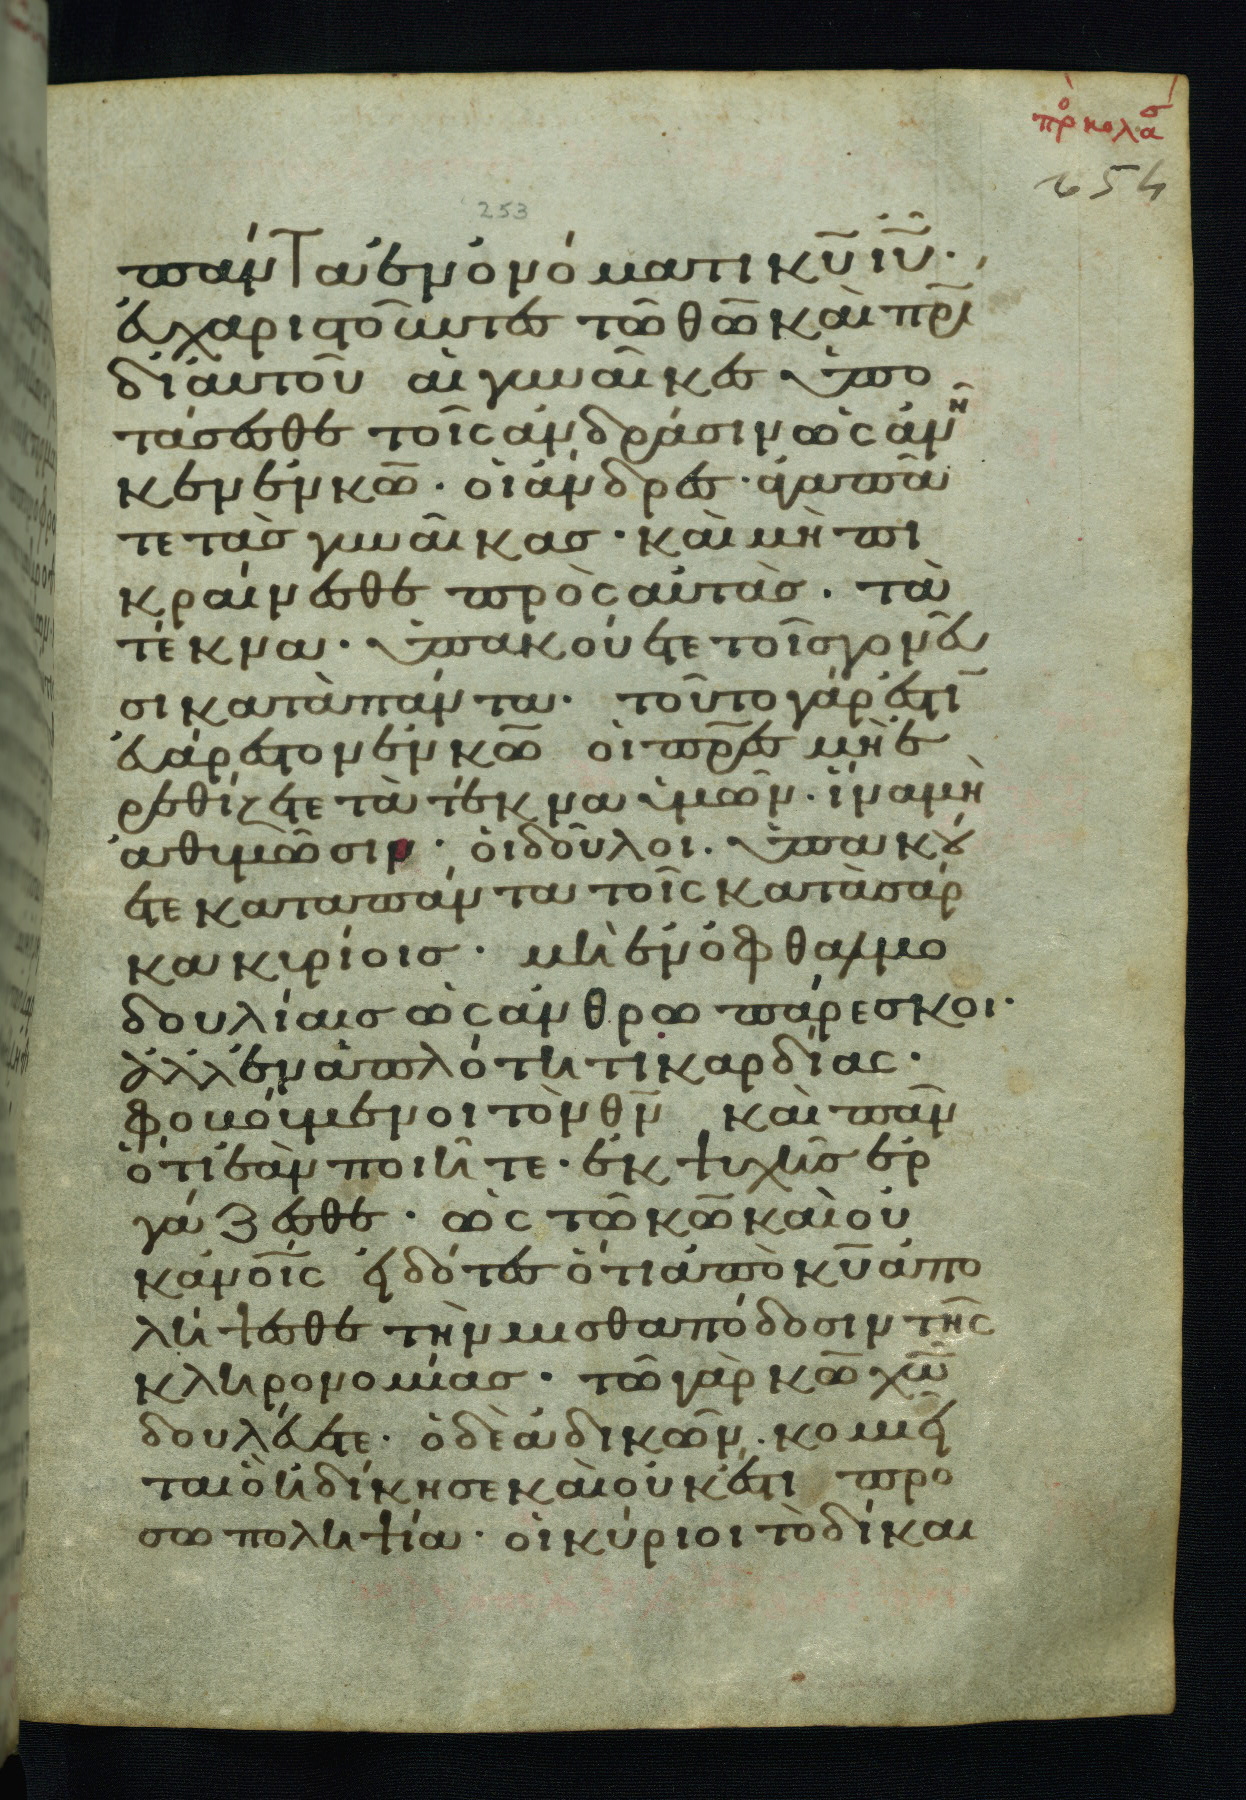 πρ κολασ
254
253
πάντα ἐν ὀνόματι κυ ιυ.
εὐχαριστοῦντες τῶ θῶ καὶ πρι
δι αὐτοῦ αἱ γυναῖκες ὑπο
τάσεσθε τοῖς ἀνδράσιν ὡς ἀνη
κεν ἐν κω. οἱ ἄνδρες. ἀγαπᾶ
τε τὰς γυναῖκας. καὶ μὴ πι
κραίνεσθε πρὸς αὐτάς. τὰ
τέκνα. ὑπακούετε τοῖς γονεῦ
σι κατὰ πάντα. τοῦτο γάρ ἐστι
εὐάρεστον ἐν κω οἱ πρες μὴ ἐ
ρεθίζετε τὰ τέκνα ὑμῶν. ἵνα μὴ
ἀθυμῶσιν. οἱ δοῦλοι. ὑπακού
ετε κατα πάντα τοῖς κατὰ σάρ
κα κυρίοις. μὴ ἐν ὀφθαλμο
δουλίαις ὡς ἀνθρωπάρεσκοι.
ἀλλ ἐν ἁπλότητι καρδίας.
φοβούμενοι τὸν θν καὶ πᾶν
ὅτι ἐὰν ποιῆτε. ἐκ ψυχῆς ἐρ
γάζεσθε. ὡς τῶ κω καὶ οὐ
κ ἀνοῖς εἰδότες ὅτι ἀπὸ κυ ἀπο
λήψεσθε τὴν μισθαπόδοσιν τῆς
κληρονομίας. τῶ γὰρ κω χω
δουλεύετε. ὁ δὲ ἀδικῶν. κομιεῖ
ται ὃ ἠδίκησε καὶ οὐκ ἔστι προ
σωποληψία. οἱ κύριοι τὸ δίκαι